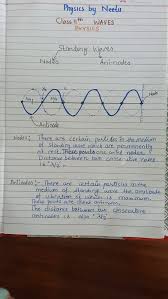 Physics by Neetu
Class 11th WAVES
PHYSICS
Standing Waves
Nodes Antinodes
Antinode
Nodes:- There are certain particles in the medium
of standing wave which are permanently
at rest. These points are called nodes.
Distance between two consecutive nodes
is λ/2.
Antinodes:- There are certain particles in the
medium of standing wave the amplitude
of vibration of which is maximum
these points are called antinodes.
The distance between two consecutive
antinodes is also λ/2.